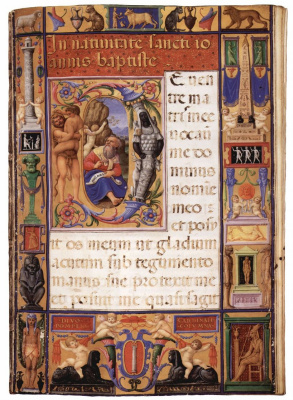 In nativitate sancti io
annis baptiste
E ven
tre ma
tris mee
vocavit
me do
minus
nomie
meo
et posu
it os meum ut gladium
acutum sub tegumento
manus sue protexit me
et posuit me quasi sagit